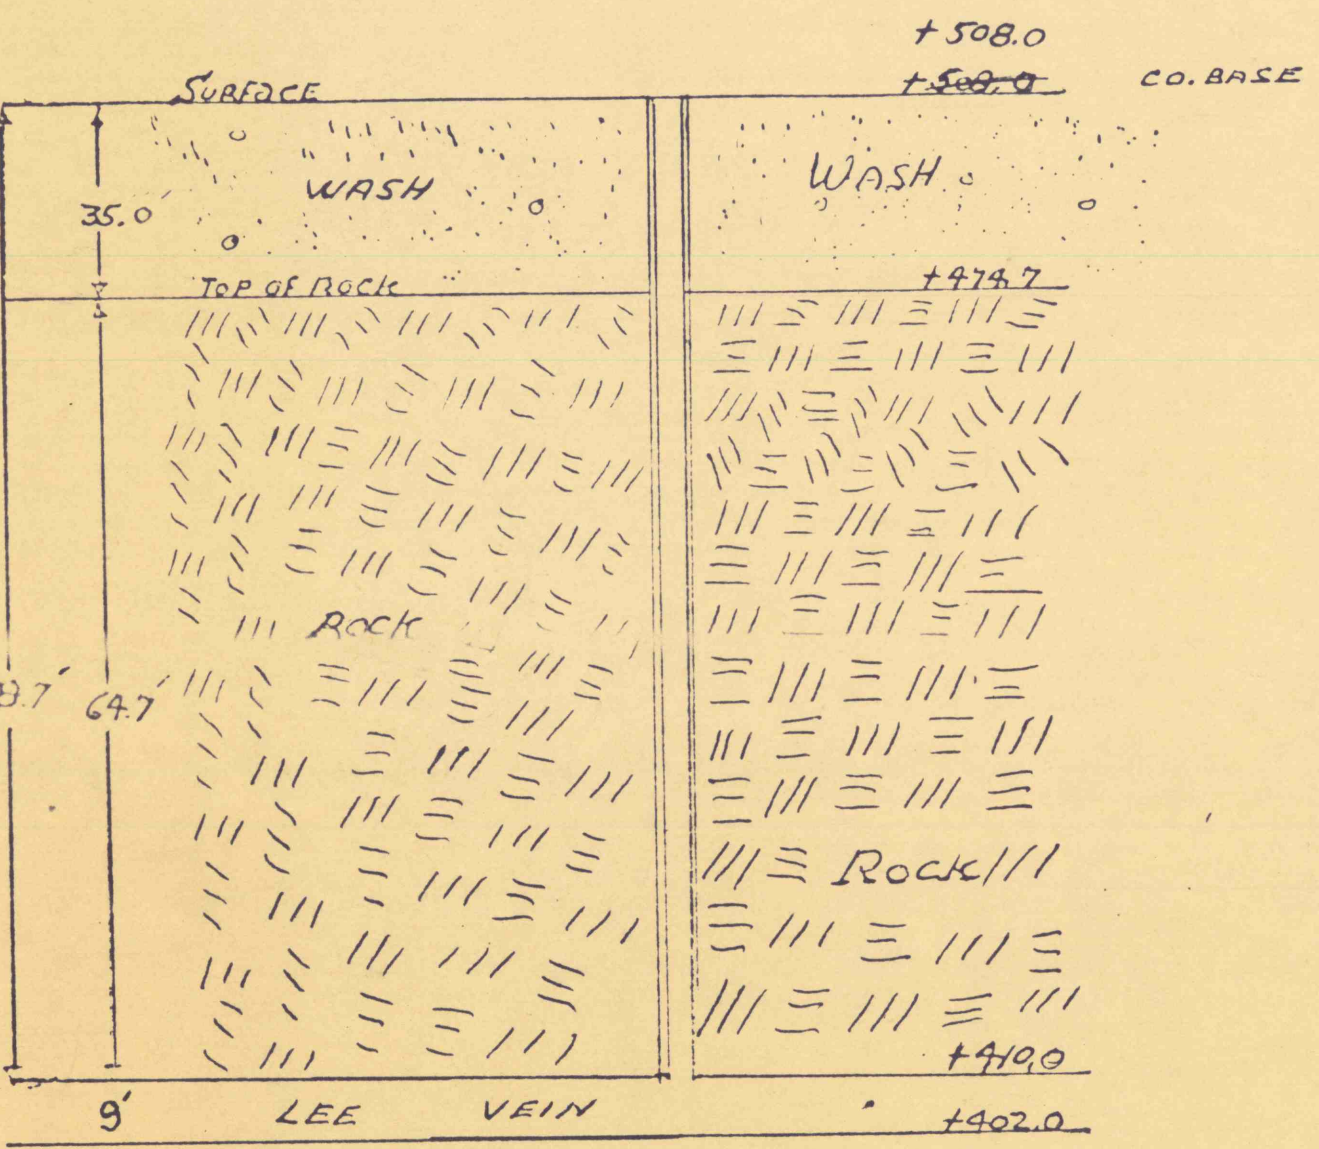 +508.0
SURFACE +508.0 CO. BASE
35.0' WASH WASH
TOP OF ROCK +474.7
ROCK
64.7'
ROCK
+410.0
9' LEE VEIN +402.0